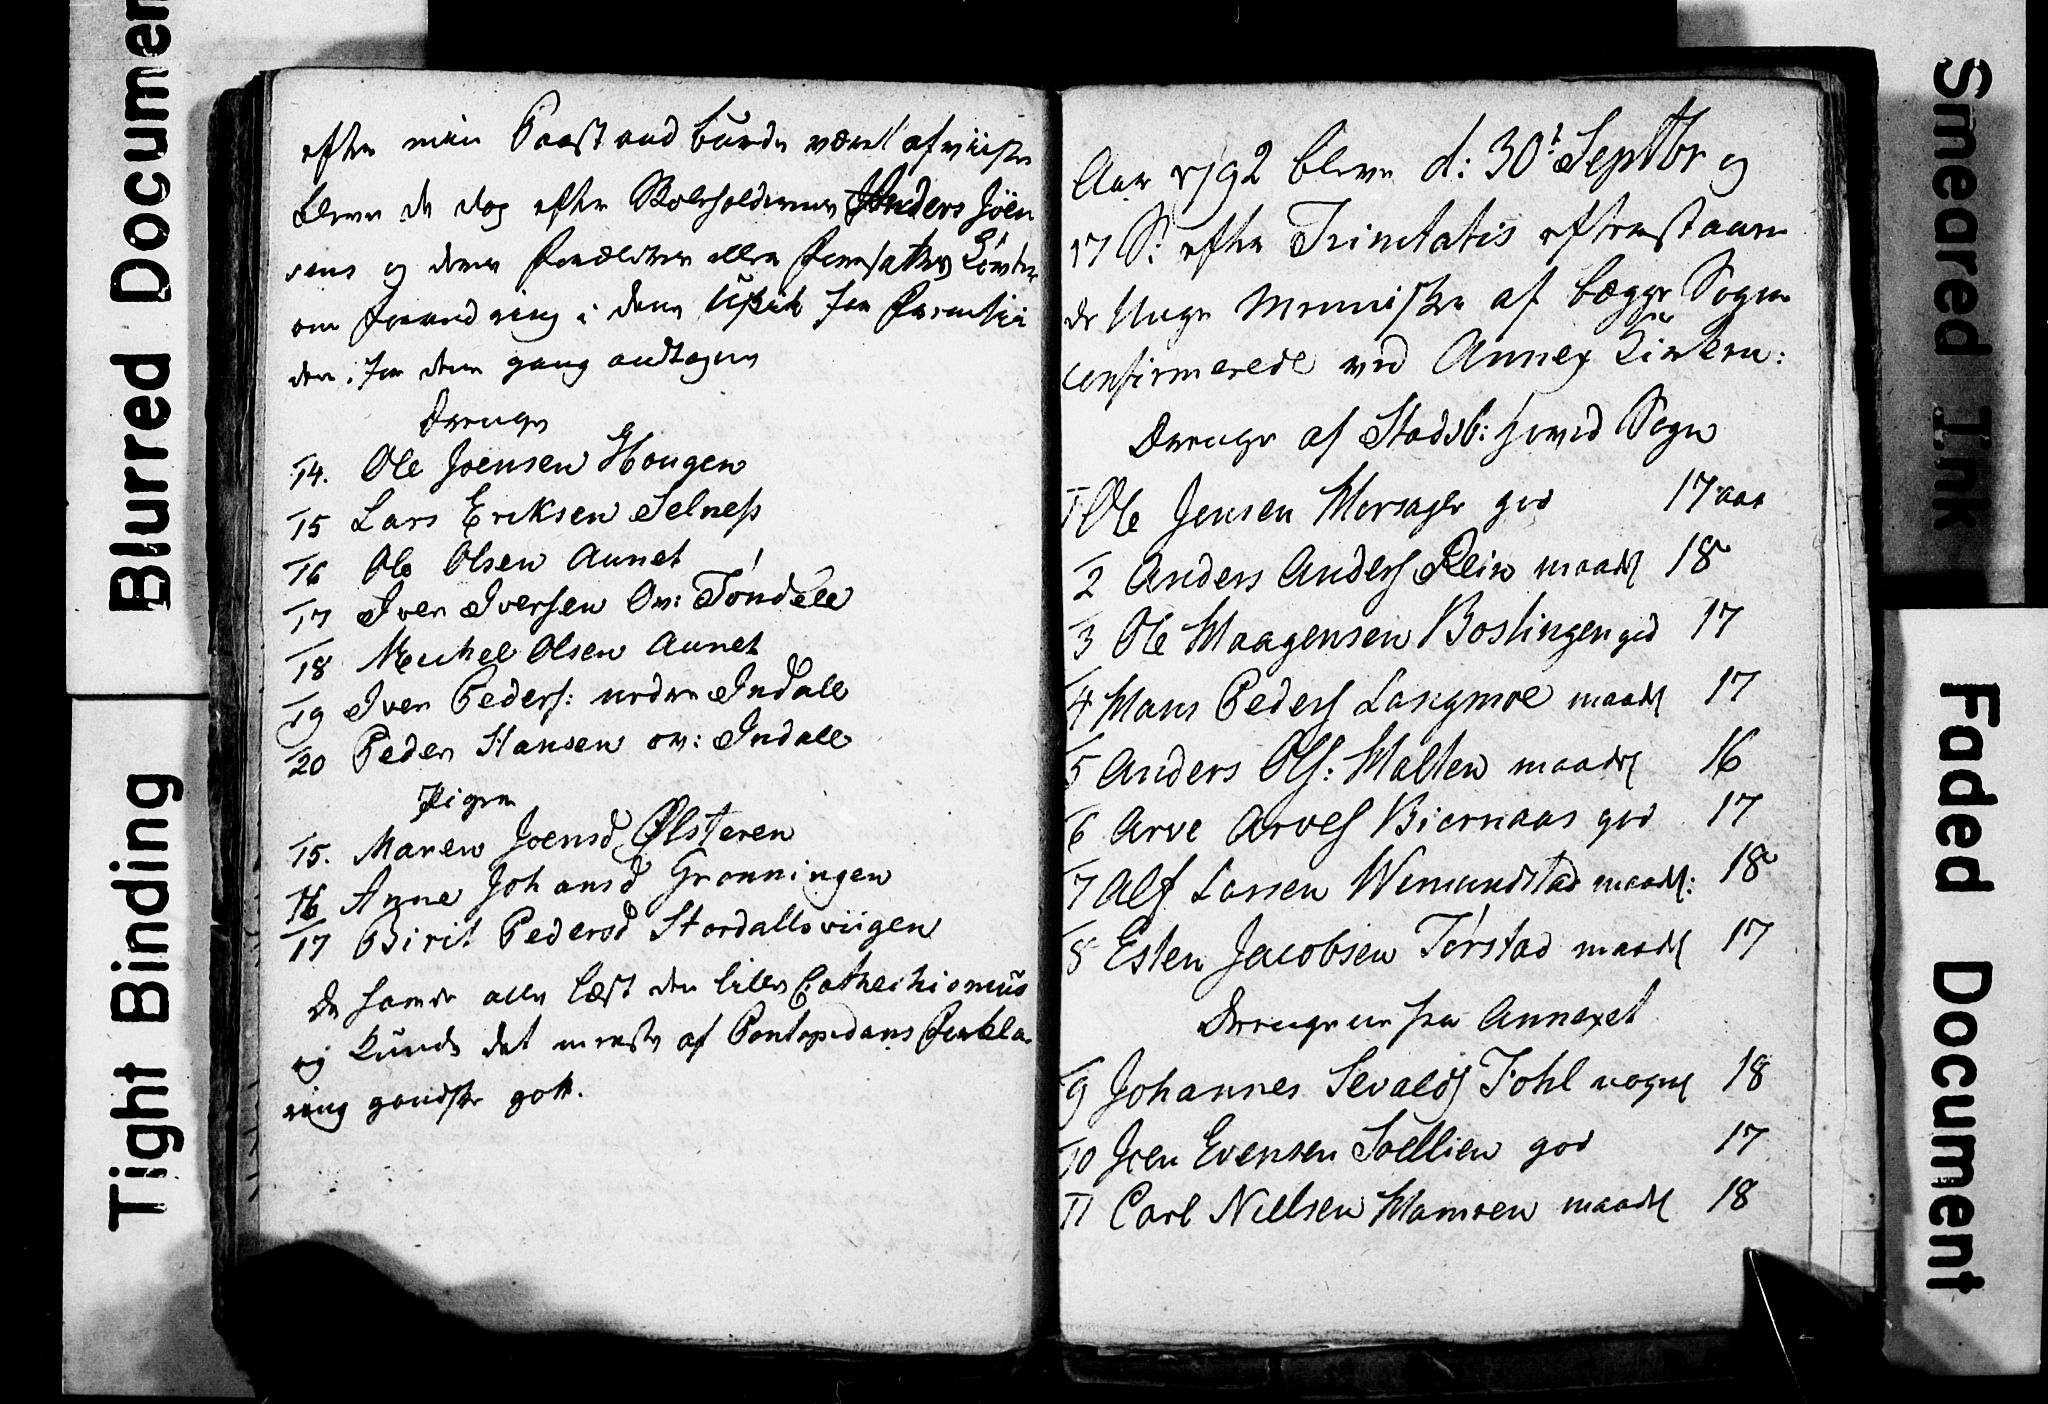 Blurred Document
Tight Binding
efter min Paastand burde vært afviiste
bleve de dog efter Skoleholderens Anders Joen
sens og deres Forældres eller Forsatters Løvte
om Forandring i dens for Fremtii
den, for denne gang andtagne
Drenge
14. Ole Joensen Hougen
15 Lars Eriksen Selness
16 Ole Olsen Aunet
17 Iver Iversen Ov: Tøndell
18 Michel Olsen Aunet
19 Iver Peders: nedre Indall
20 Peder Hansen ov: Indall
Piger
15. Maren Joensd Ølsteren
16 Anne Johansd Grønningen
17 Birit Pedersd Stordallsviigen
De havde alle læst den lille Cathechismus
og kunde det meeste af Pontopidans Forkla-
ring gandske gott.
Aar 1792 bleve d: 30t Septbr og
17 S: efter Trinitatis efterstaaen
de Unge Mennisker af begge Sogne
confirmerede ved Annex Kirken:
Drenge af Stadsb: hoved Sogn
1 Ole Jensen Morsager god 17 aar
2 Anders Anders Rein maadl 18
3 Ole Maagensen Bostingen god 17
4 Mans Peders Langmoe maadl 17
5 Anders Ols: Malten maadl 16
6 Arve Arves Biernaas god 17
7 Alf Larsen Wemundstad maadl: 18
8 Esten Jacobsen Tørstad maadl 17
Drengene fra Annexet
9 Johannes Sevalds Fohl 18
10 Joen Evensen Soellien god 17
11 Carl Nielsen Mamoen maadl 18
Smeared Ink
Faded Document